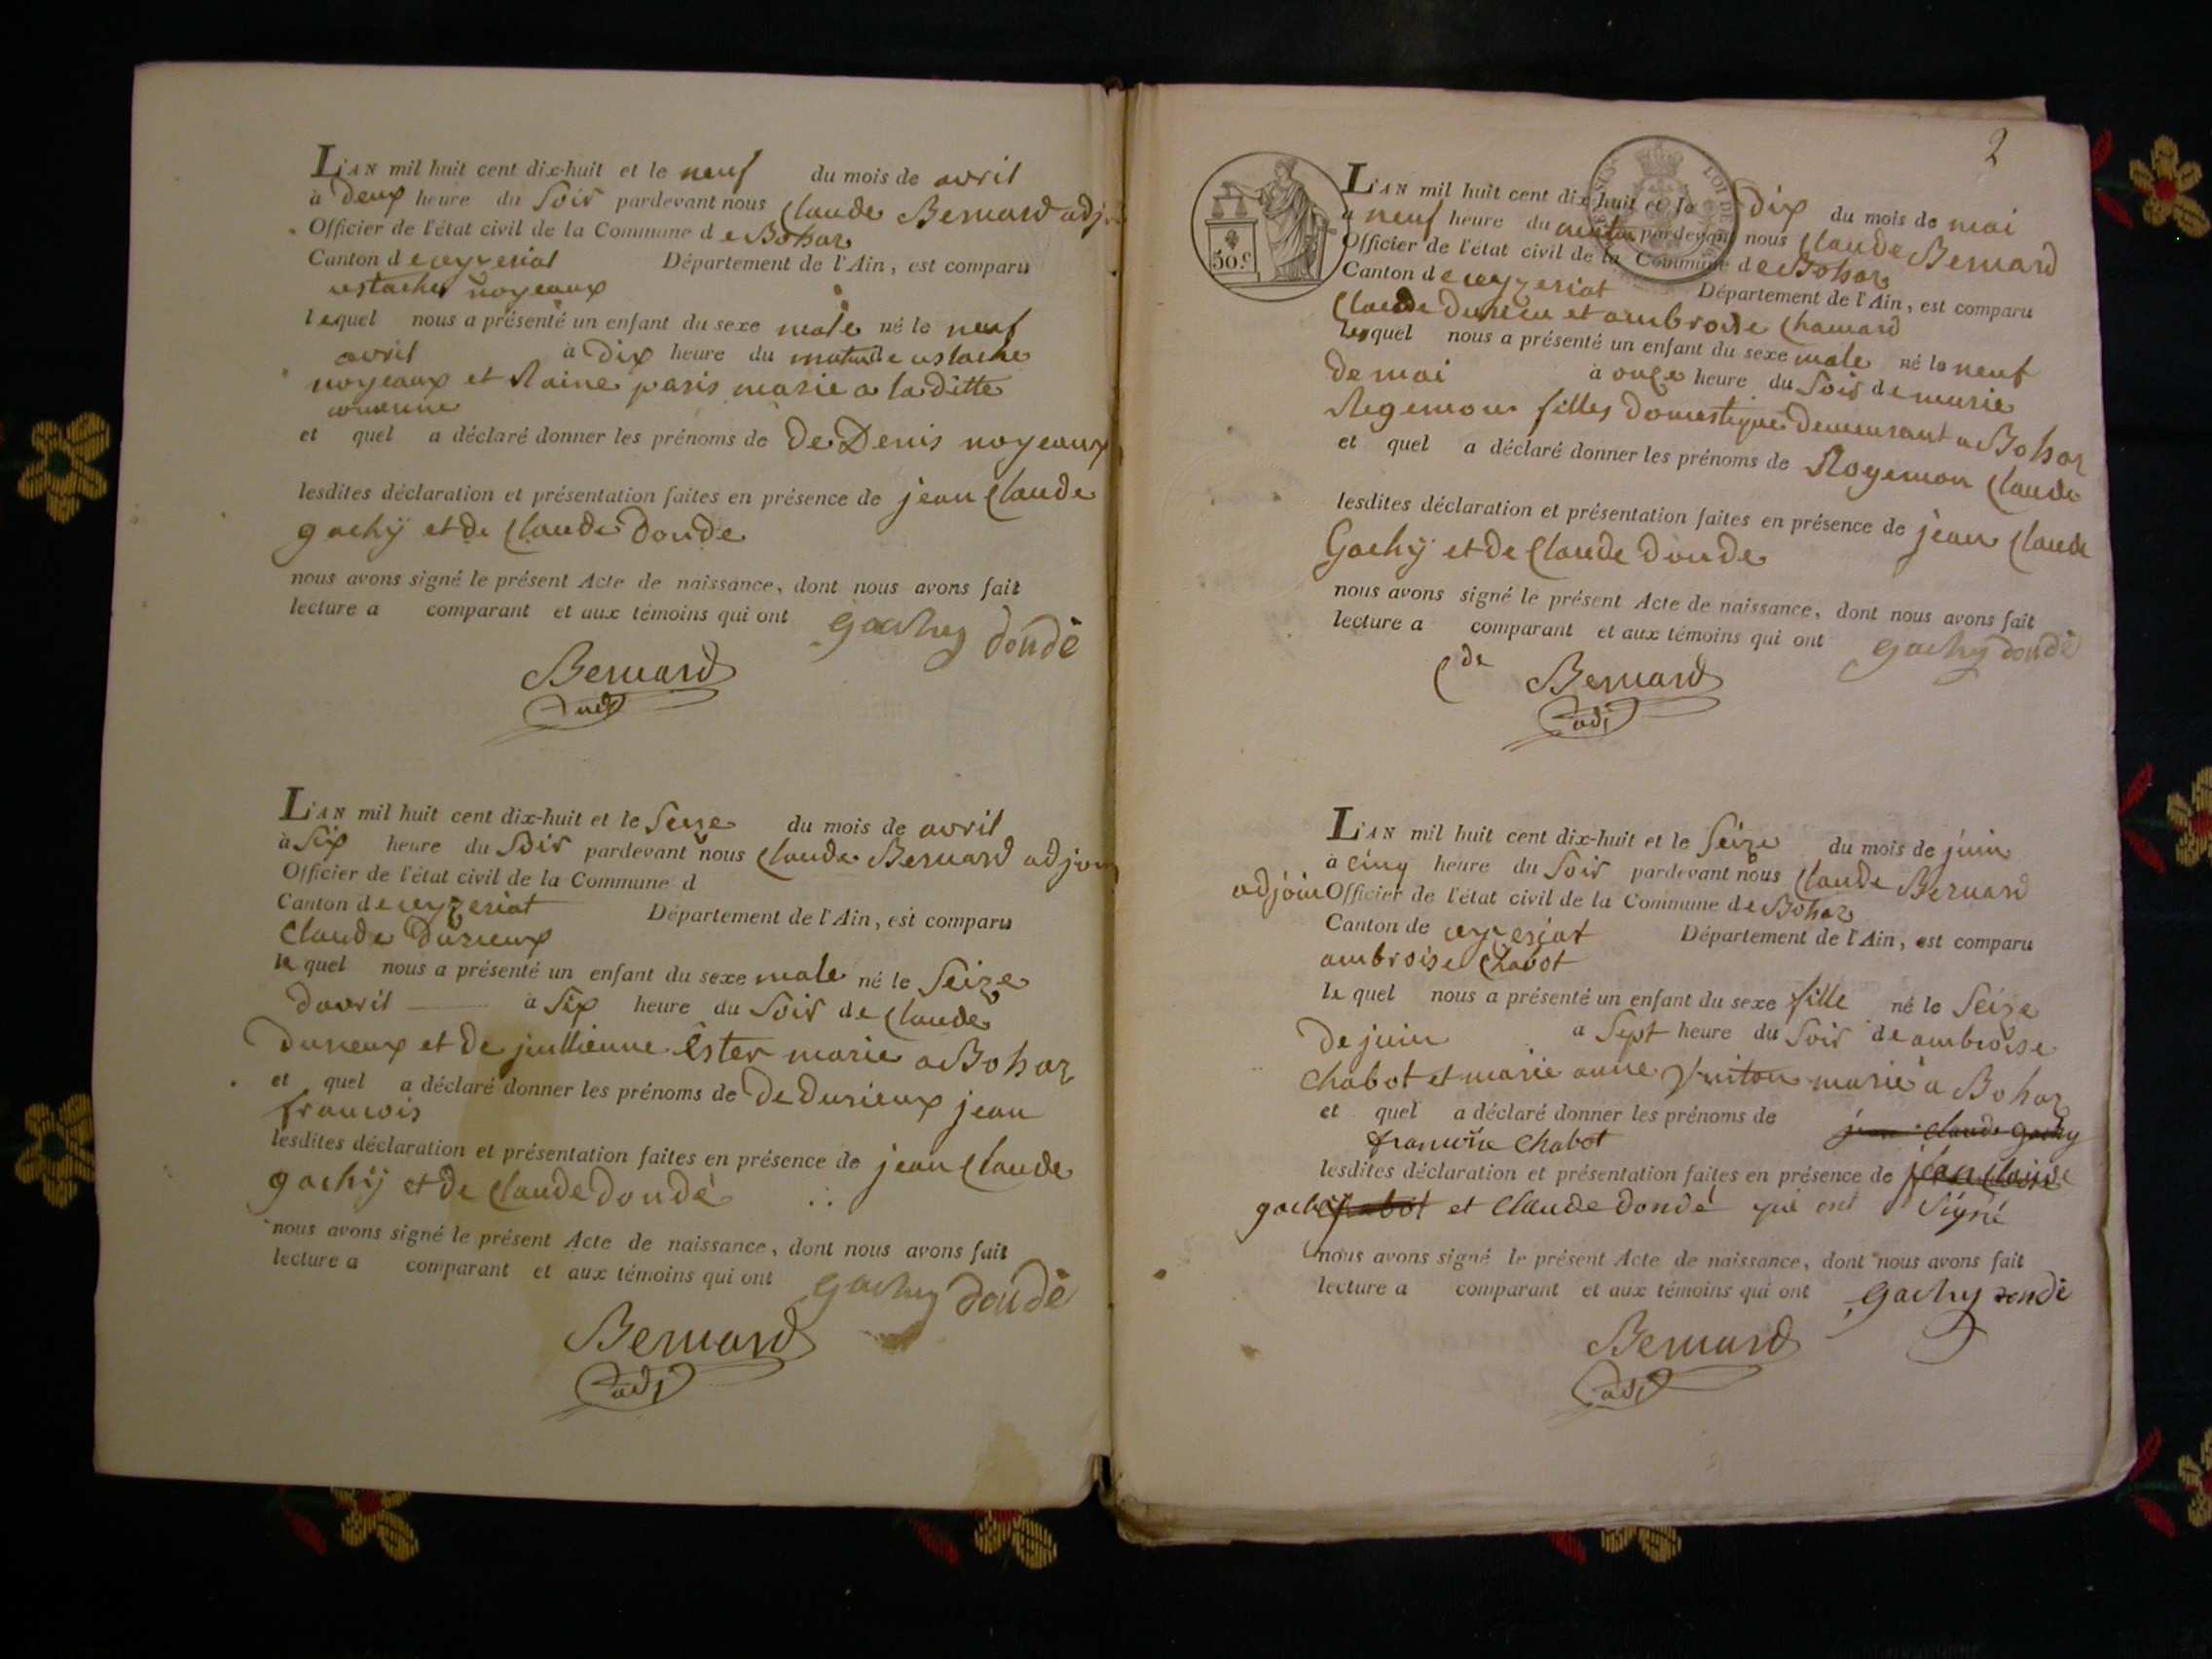 L'AN mil huit cent dix-huit et le neuf du mois de avril
à Deux heure du Soir pardevant nous Claude Bernard adj
Officier de l'état civil de la Commune de Bohas
Canton de ceyzeriat Département de l'Ain, est comparu
ustache noyeaux
lequel nous a présenté un enfant du sexe male né le neuf
avril à Dix heure du matin de ustache
noyeaux et Raine paris marie a la ditte
commune
et quel a déclaré donner les prénoms de De Denis noyeaux
lesdites déclaration et présentation faites en présence de jean Claude
gachÿ et de Claude Donde
nous avons signé le présent Acte de naissance, dont nous avons fait
lecture a comparant et aux témoins qui ont gachy dondé
Bernard
adj
L'AN mil huit cent dix-huit et le Seize du mois de avril
à Six heure du Soir pardevant nous Claude Bernard adjoin
Officier de l'état civil de la Commune d
Canton de ceyzeriat Département de l'Ain, est comparu
Claude Durieux
le quel nous a présenté un enfant du sexe male né le Seize
davril à Six heure du Soir de Claude
Durieux et de jullienne Ester marie a Bohas
et quel a déclaré donner les prénoms de De Durieux jean
francois
lesdites déclaration et présentation faites en présence de jean Claude
gachÿ et de Claude dondé
nous avons signé le présent Acte de naissance, dont nous avons fait
lecture a comparant et aux témoins qui ont gachy dondé
Bernard
adj
2
50 c.
L'AN mil huit cent dix-huit et le Dix du mois de mai
à neuf heure du matin pardevant nous Claude Bernard
Officier de l'état civil de la Commune de Bohas
Canton de ceyzeriat Département de l'Ain, est comparu
Claude Durieu et ambroise Chamard
lesquel nous a présenté un enfant du sexe male né le neuf
de mai à onze heure du Soir de marie
Regemon filles Domestique demeurant a Bohas
et quel a déclaré donner les prénoms de Rogemon Claude
lesdites déclaration et présentation faites en présence de jean Claude
Gachÿ et de Claude donde
nous avons signé le présent Acte de naissance, dont nous avons fait
lecture a comparant et aux témoins qui ont gachy dondé
Cde Bernard
adj
L'AN mil huit cent dix-huit et le Seize du mois de juin
à cinq heure du Soir pardevant nous Claude Bernard
adjoin Officier de l'état civil de la Commune de Bohas
Canton de ceyzeriat Département de l'Ain, est comparu
ambroise Chabot
le quel nous a présenté un enfant du sexe fille né le Seize
de juin a Sept heure du Soir de ambroise
Chabot et marie anne marié a Bohas
et quel a déclaré donner les prénoms de jean Claude gachy
francoise Chabot
lesdites déclaration et présentation faites en présence de jean Claude
gachy Chabot et Claude dondé qui ont Signé
nous avons signé le présent Acte de naissance, dont nous avons fait
lecture a comparant et aux témoins qui ont gachy dondé
Bernard
adj